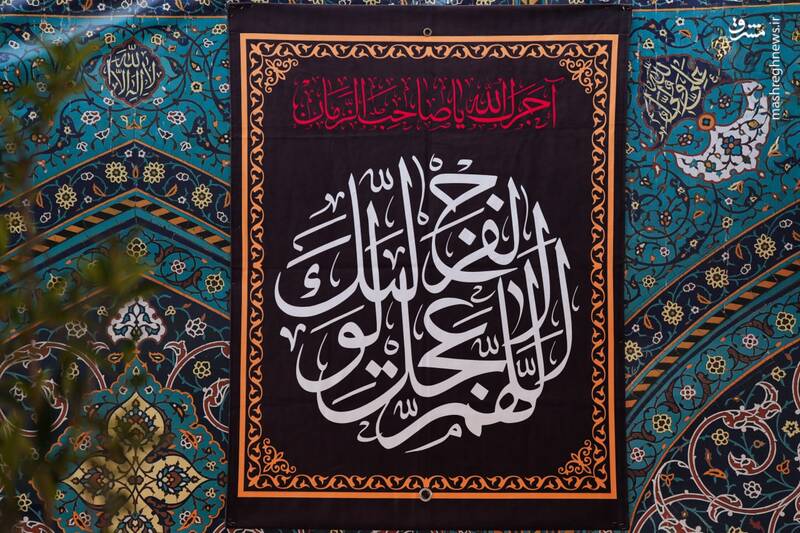 آجرک الله یا صاحب الزمان
اللهم عجل لولیک الفرج
لا اله الا الله
مشرق
mashreghnews.ir